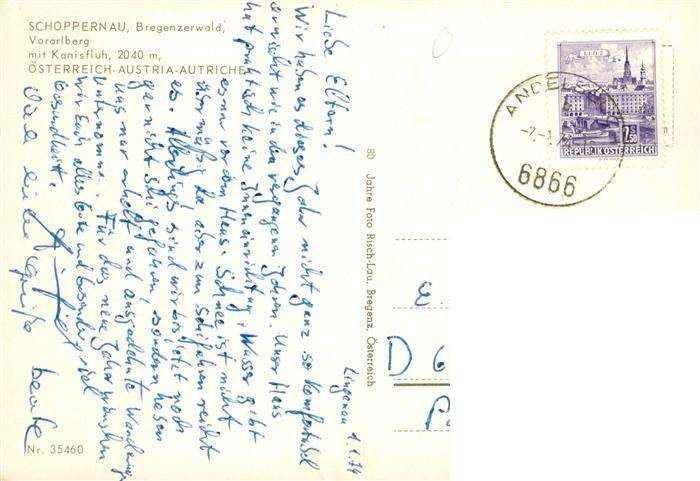 SCHOPPERNAU, Bregenzerwald,
Vorarlberg
mit Kanisfluh, 2040 m,
ÖSTERREICH-AUSTRIA-AUTRICHE
Nr. 35460
80 Jahre Foto Risch-Lau, Bregenz, Österreich
LINZ
2.50
REPUBLIK ÖSTERREICH
ANDELS
6866
Lingenau 1.1.74
Liebe Eltern!
Wir haben es dieses Jahr nicht ganz so komfortabel
erwischt wie in den vergangenen Jahren. Unser Haus
hat praktisch keine Inneneinrichtung, Wasser gibt
es nur vor dem Haus. Schnee ist nicht
da aber zum Schifahren reicht
es. Allerdings sind wir bis jetzt noch
gar nicht Ski gefahren, sondern haben
uns nur erholt und ausgedehnte Wanderungen
unternommen. Für das neue Jahr wünschen
wir Euch alles Gute und besonders viel
Gesundheit.
Viele liebe Grüße
Beate
E.
D 6